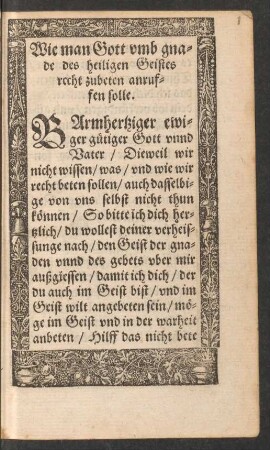 Wie man Gott vmb gna-
de des heiligen Geistes
recht zubeten anruf-
fen solle.
BArmhertziger ewi-
ger gütiger Gott vnnd
Vater / Dieweil wir
nicht wissen / was / vnd wie wir
recht beten sollen / auch dasselbi-
ge von vns selbst nicht thun
können / So bitte ich dich her-
tzlich / du wollest deiner verheis-
sunge nach / den Geist der gna-
den vnnd des gebets vber mir
außgiessen / damit ich dich / der
du auch im Geist bist / vnd im
Geist wilt angebeten sein / mö-
ge im Geist vnd in der warheit
anbeten / Hilff das nicht bete